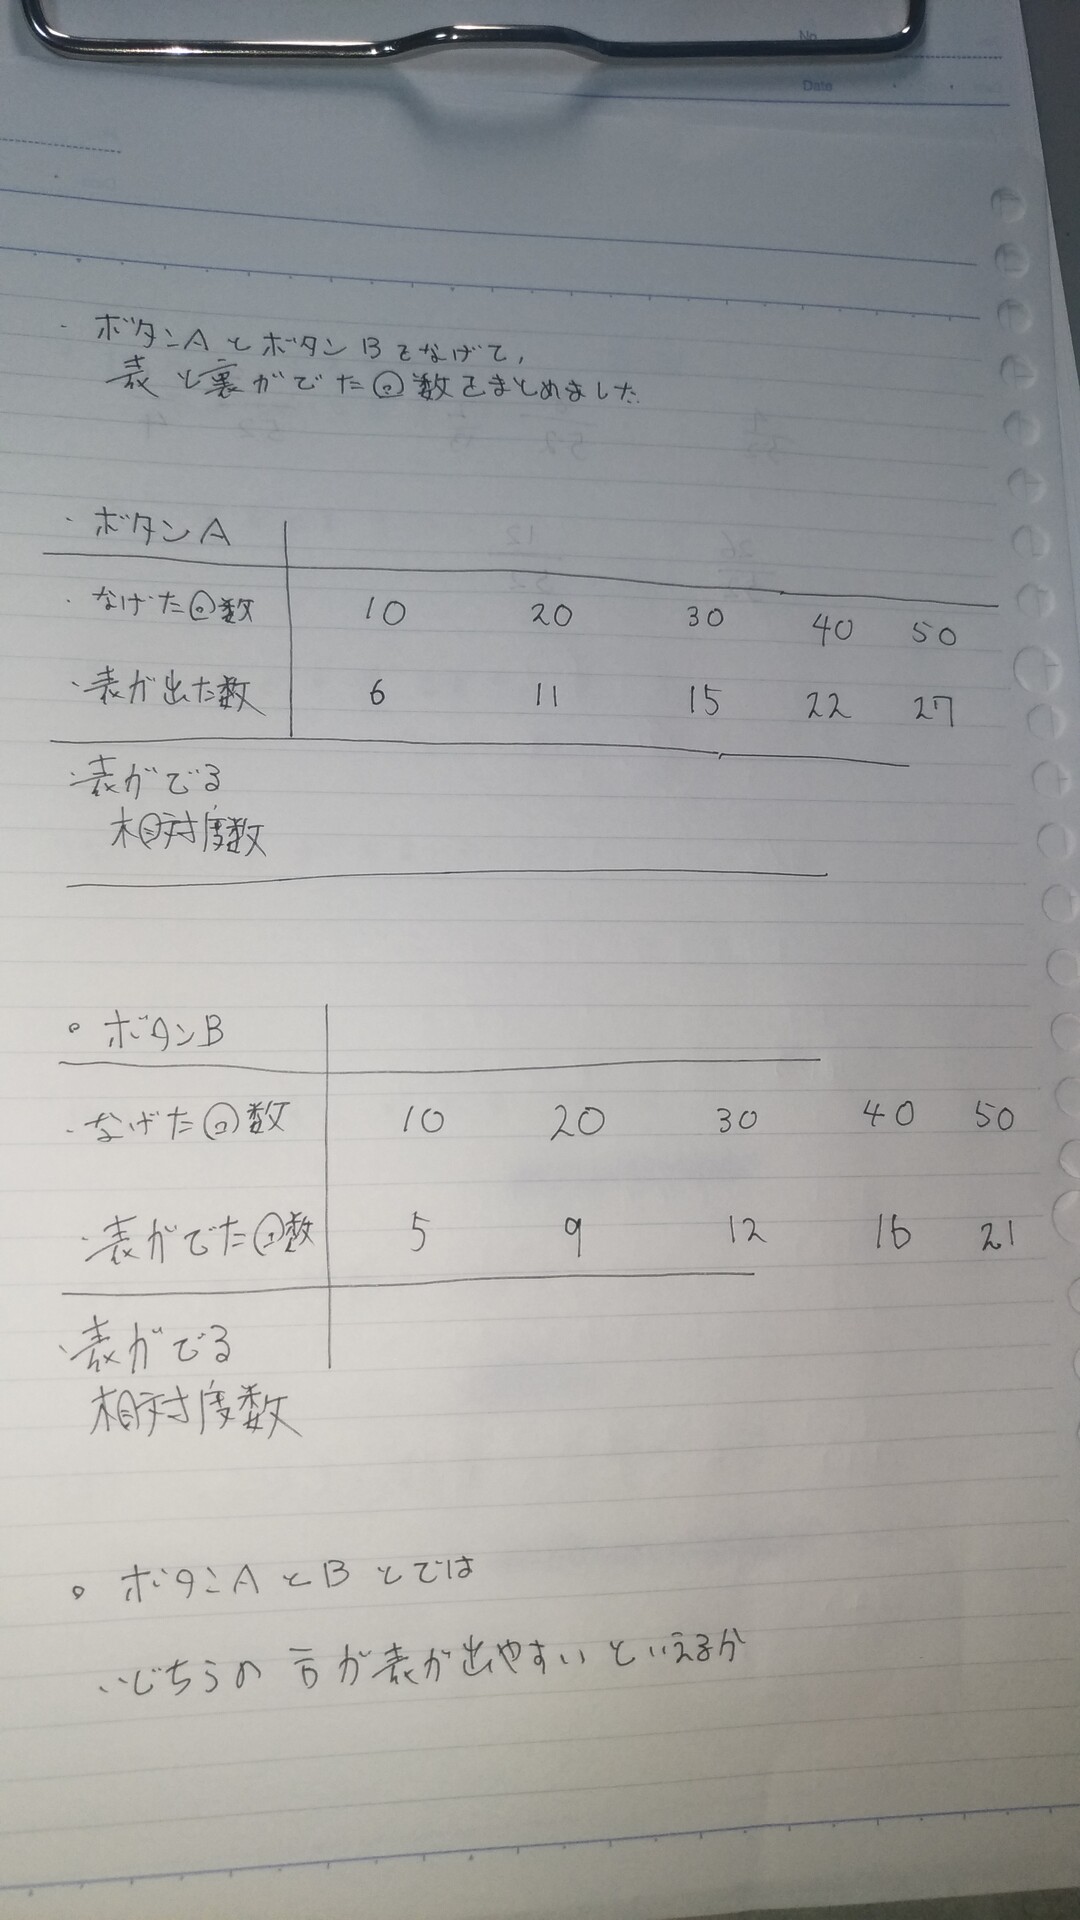 No.
Date
・ボタンAとボタンBをなげて,
表と裏がでた回数をまとめました.
・ボタンA
・なげた回数 10 20 30 40 50
・表が出た数 6 11 15 22 27
・表がでる
相対度数
○ボタンB
・なげた回数 10 20 30 40 50
・表がでた回数 5 9 12 16 21
・表がでる
相対度数
○ボタンAとBとでは
・どちらの方が表が出やすいといえるか